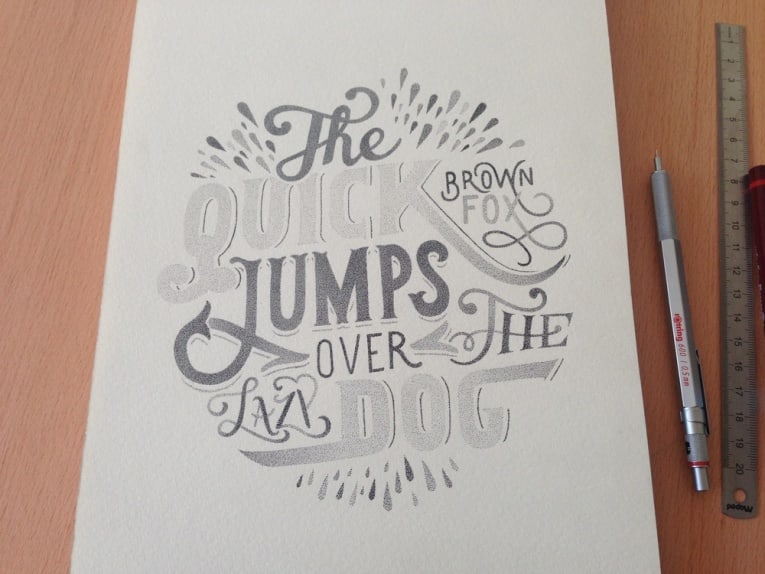 The
QUICK
BROWN
FOX
JUMPS
OVER
THE
LAZY
DOG
rotring 600 / 0.5 mm
1 2 3 4 5 6 7 8 9 10 11 12 13 14 15 16 17 18 19 20
Maped